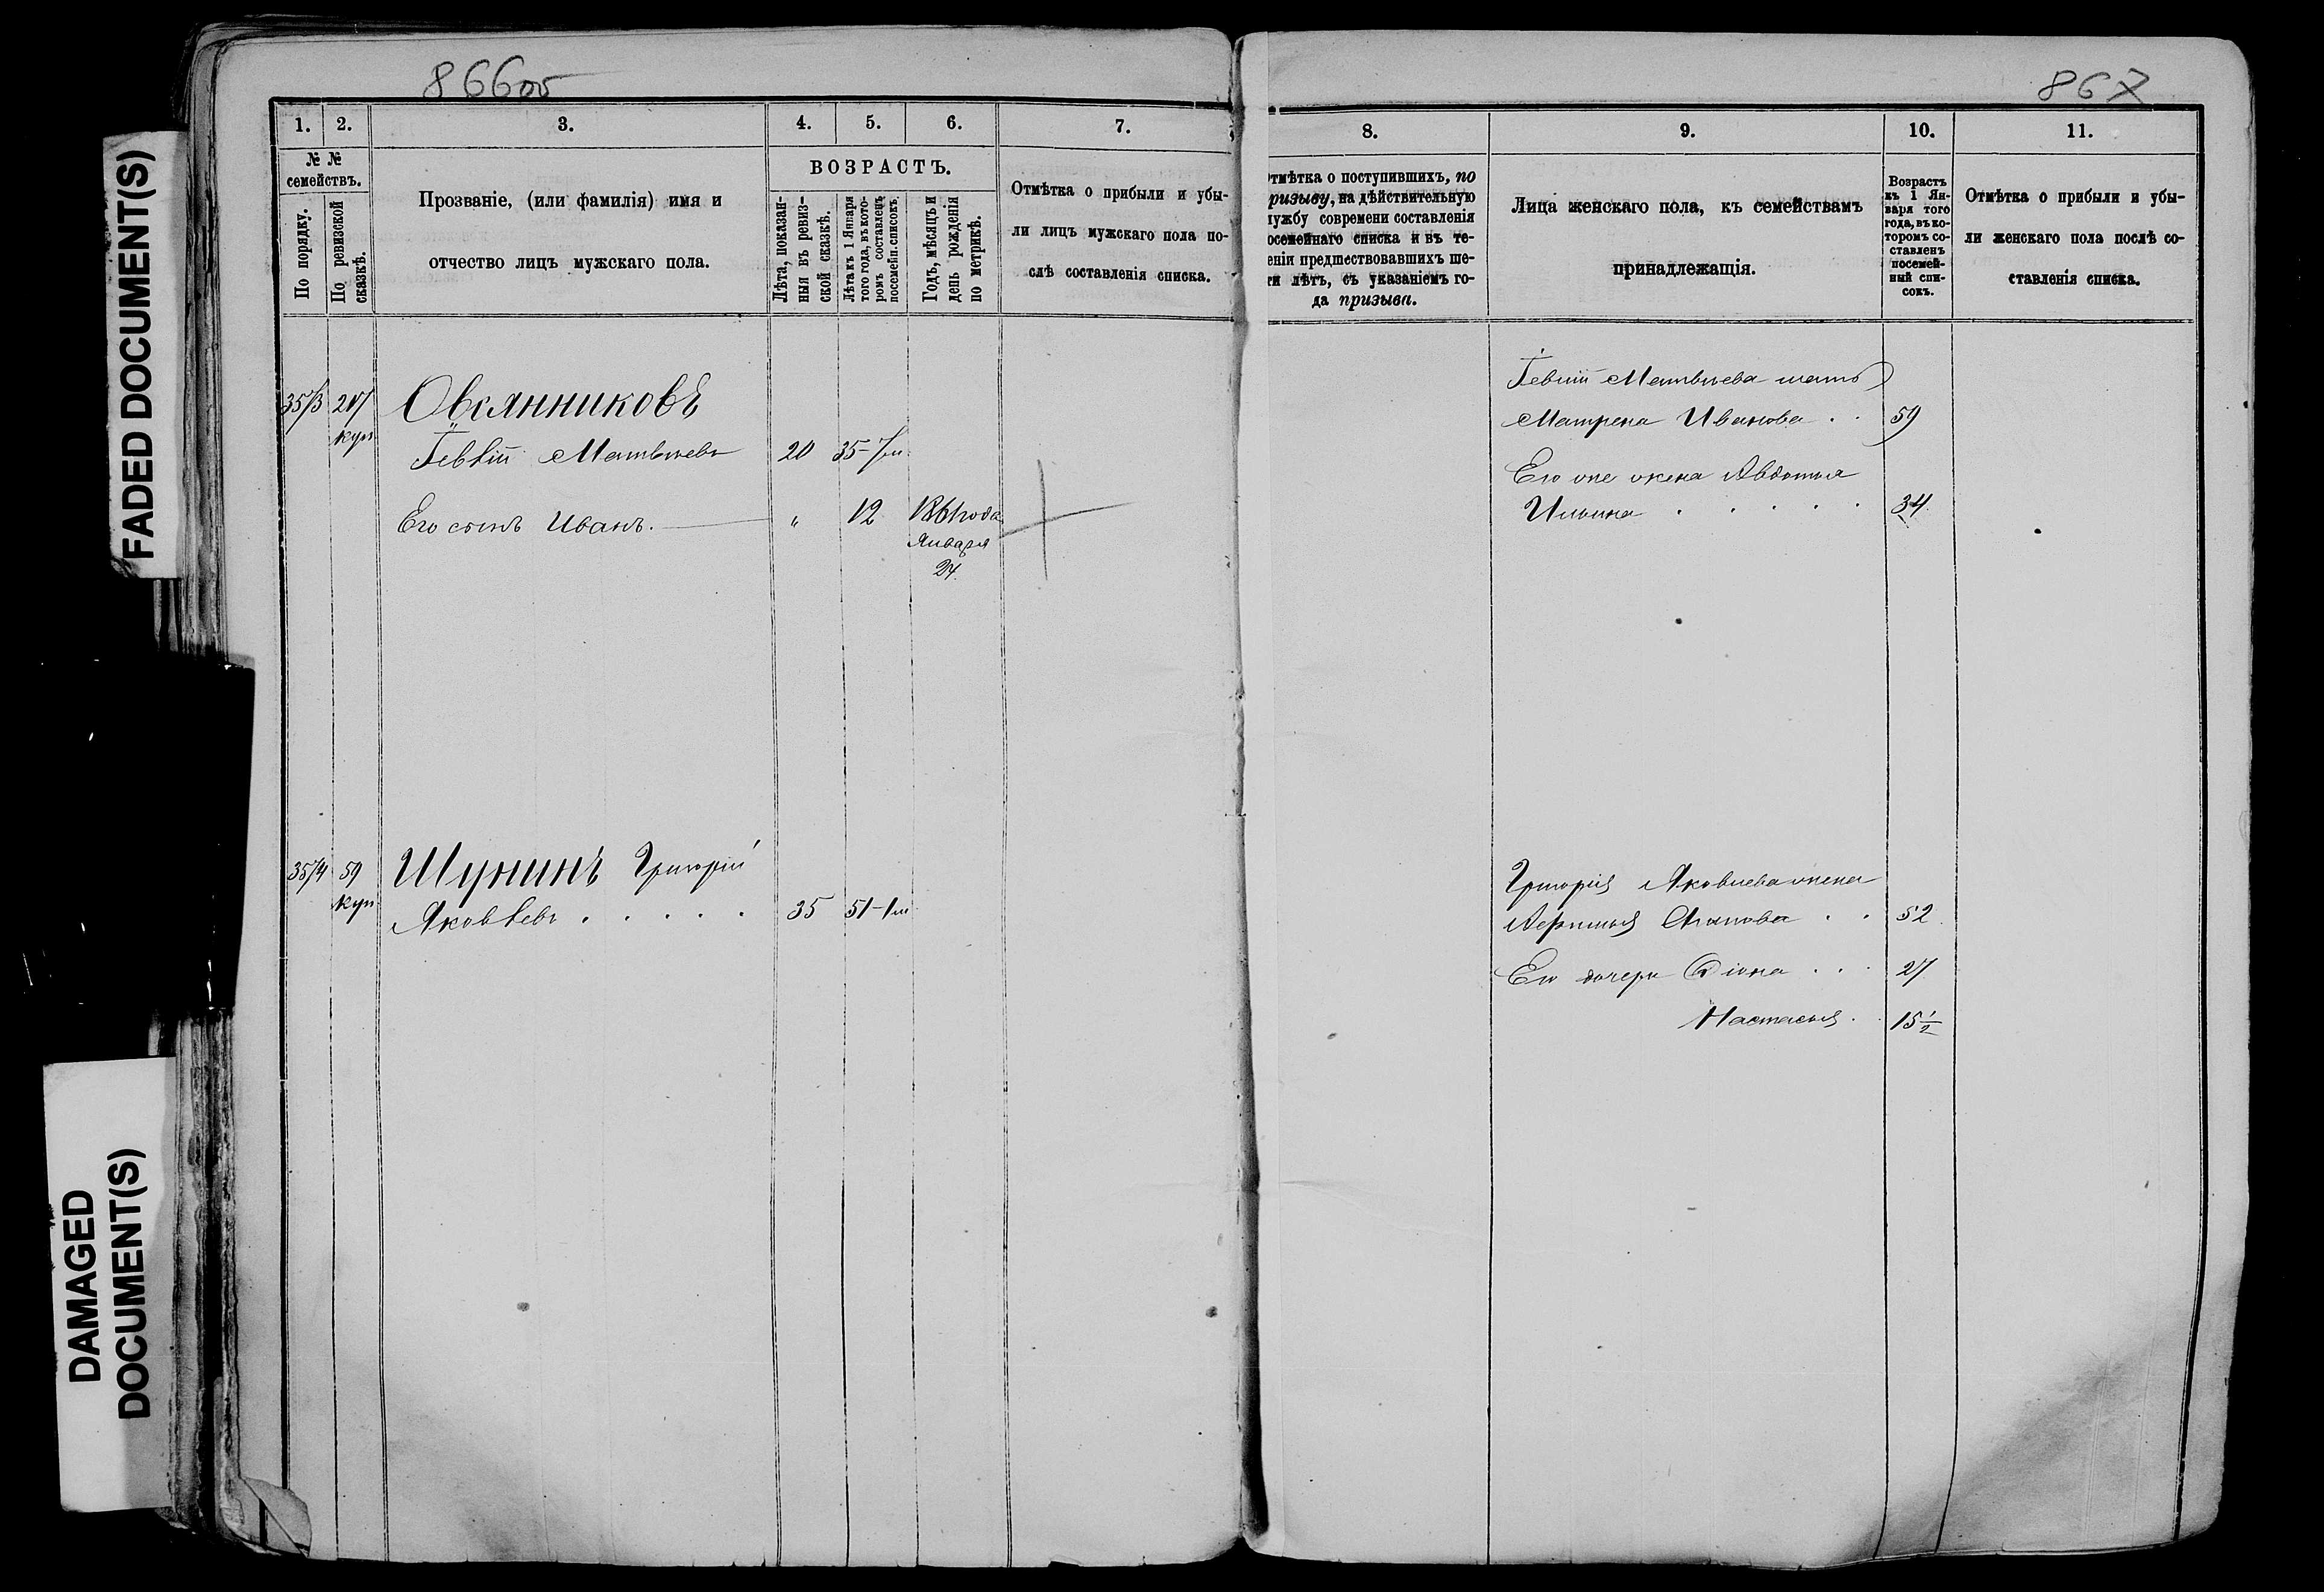 FADED DOCUMENT(S)
DAMAGED
DOCUMENT(S)
866об
1. 2. 3. 4. 5. 6. 7.
№ №
семействъ.
По порядку.
По ревизской
сказкѣ.
Прозваніе, (или фамилія) имя и
отчество лицъ мужскаго пола.
ВОЗРАСТЪ.
Лѣта, показан-
ныя въ ревиз-
ской сказкѣ.
Лѣта къ 1 Января
того года, въ кото-
ромъ составленъ
посемейн. списокъ.
Годъ, мѣсяцъ и
день рожденія
по метрикѣ.
Отмѣтка о прибыли и убы-
ли лицъ мужскаго пола по-
слѣ составленія списка.
Овсянниковъ
куп
Матвѣевъ 20 35
Его сынъ Иванъ. " 12 1861 года
Января
24.
59 Шунинъ Григорій
куп Яковлевъ . . . . . 35 51
867
8. 9. 10. 11.
отмѣтка о поступившихъ, по
ризыву, на дѣйствительную
лужбу современи составленія
осемейнаго списка и въ те-
еніи предшествовавшихъ ше-
ти лѣтъ, съ указаніемъ го-
да призыва.
Лица женскаго пола, къ семействамъ
принадлежащія.
Возрастъ
къ 1 Ян-
варя того
года, въ ко-
торомъ со-
ставленъ
посемей-
ный спи-
сокъ.
Отмѣтка о прибыли и убы-
ли женскаго пола послѣ со-
ставленія списка.
Матвѣева мать
Матрена Иванова . . 59
Его же жена Авдотья
Ильина . . . . . 34
Григорія Яковлева жена
. . 52
Его дочери . . . 27
Настасья . . 15½